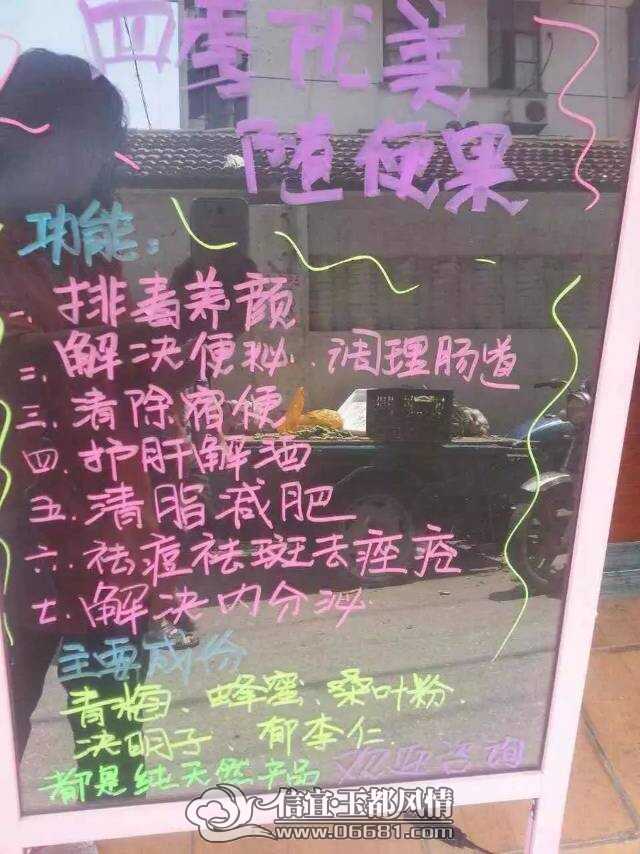 四季优美
随便果
功能：
一、排毒养颜
二、解决便秘、调理肠道
三、清除宿便
四、护肝解酒
五、清脂减肥
六、祛痘祛斑去痤疮
七、解决内分泌
主要成份
青梅、蜂蜜、桑叶粉、
决明子、郁李仁
都是纯天然产品 欢迎咨询
信宜·玉都风情
www.06681.com